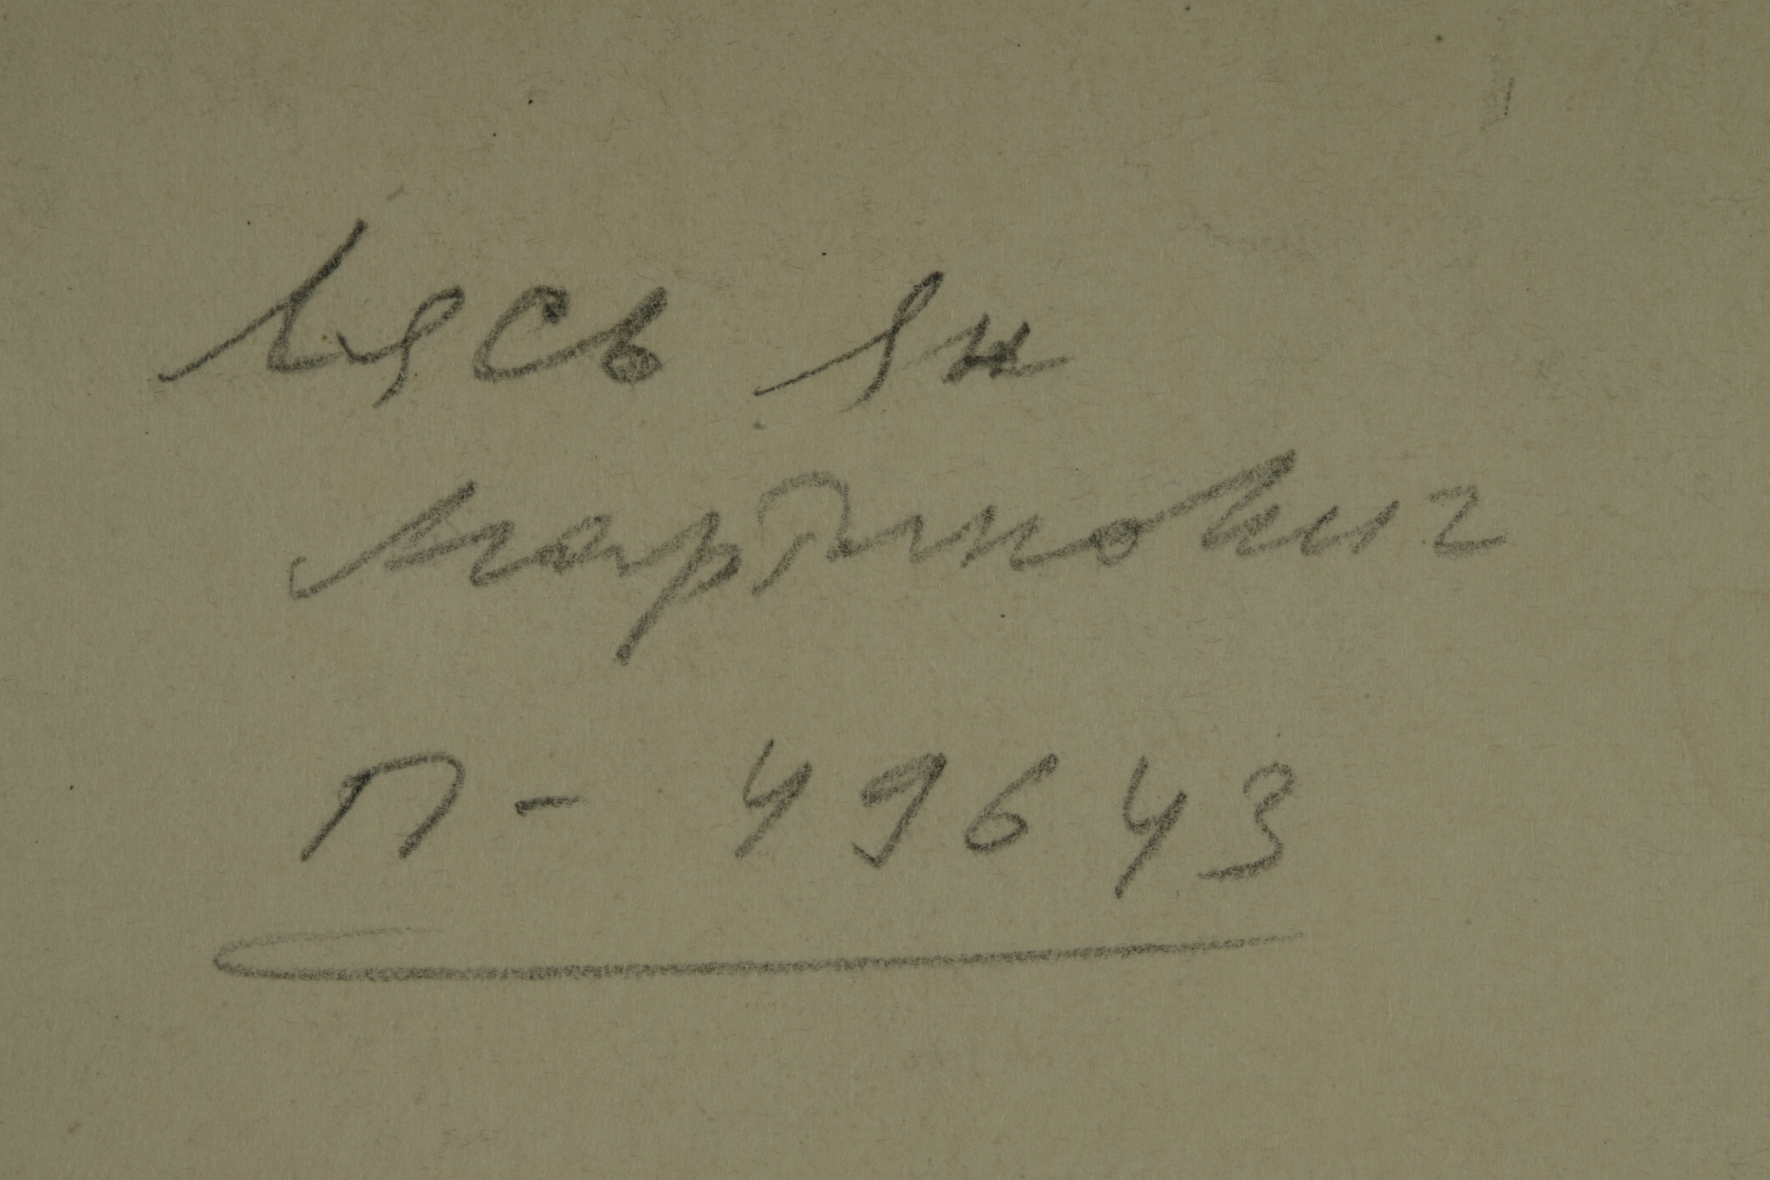 Лясь Ян
Мартинович
П - 49643